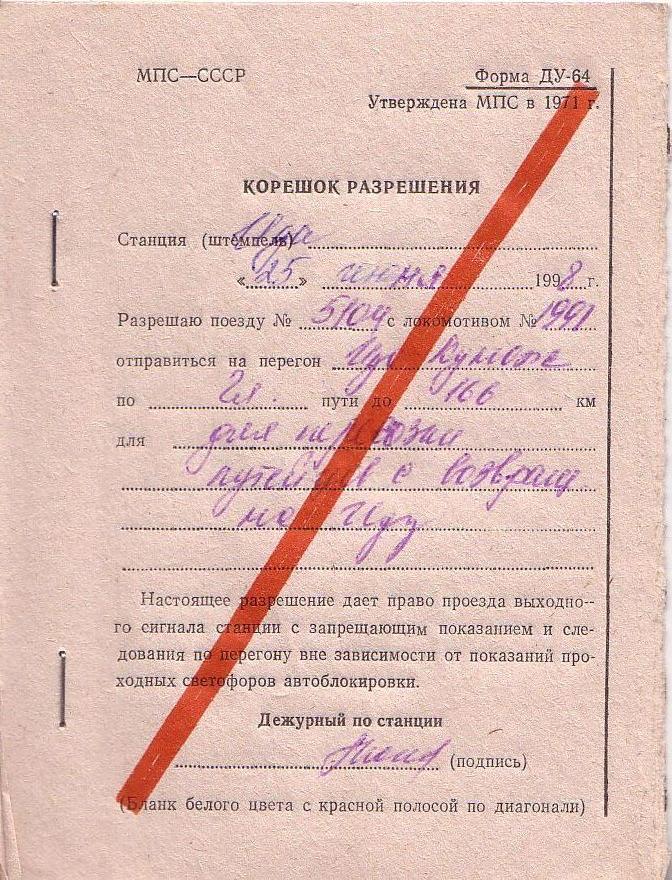 МПС—СССР
Форма ДУ-64
Утверждена МПС в 1971 г.
КОРЕШОК РАЗРЕШЕНИЯ
Станция (штемпель) Ида
«25» июня 1998 г.
Разрешаю поезду № 5104 с локомотивом № 1991
отправиться на перегон
по Гл. пути до 166 км
для для перевозки
путейцев с возвращ
на Иду
Настоящее разрешение дает право проезда выходно-
го сигнала станции с запрещающим показанием и сле-
дования по перегону вне зависимости от показаний про-
ходных светофоров автоблокировки.
Дежурный по станции
(подпись)
(Бланк белого цвета с красной полосой по диагонали)